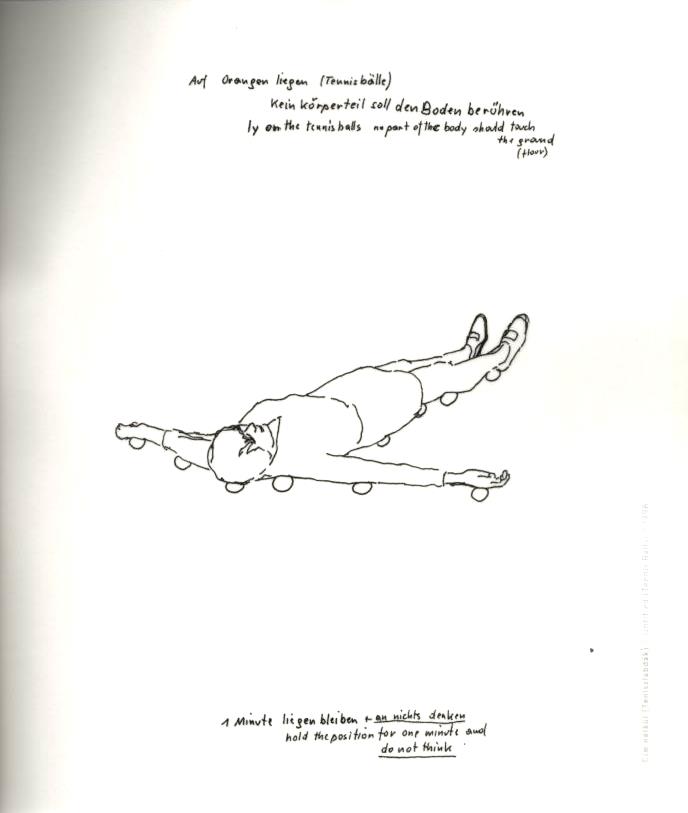 Auf Orangen liegen (Tennisbälle)
Kein körperteil soll den Boden berühren
ly on the tennisballs no part of the body should touch
the ground
(floor)
1 Minute liegen bleiben + an nichts denken
hold the position for one minute and
do not think